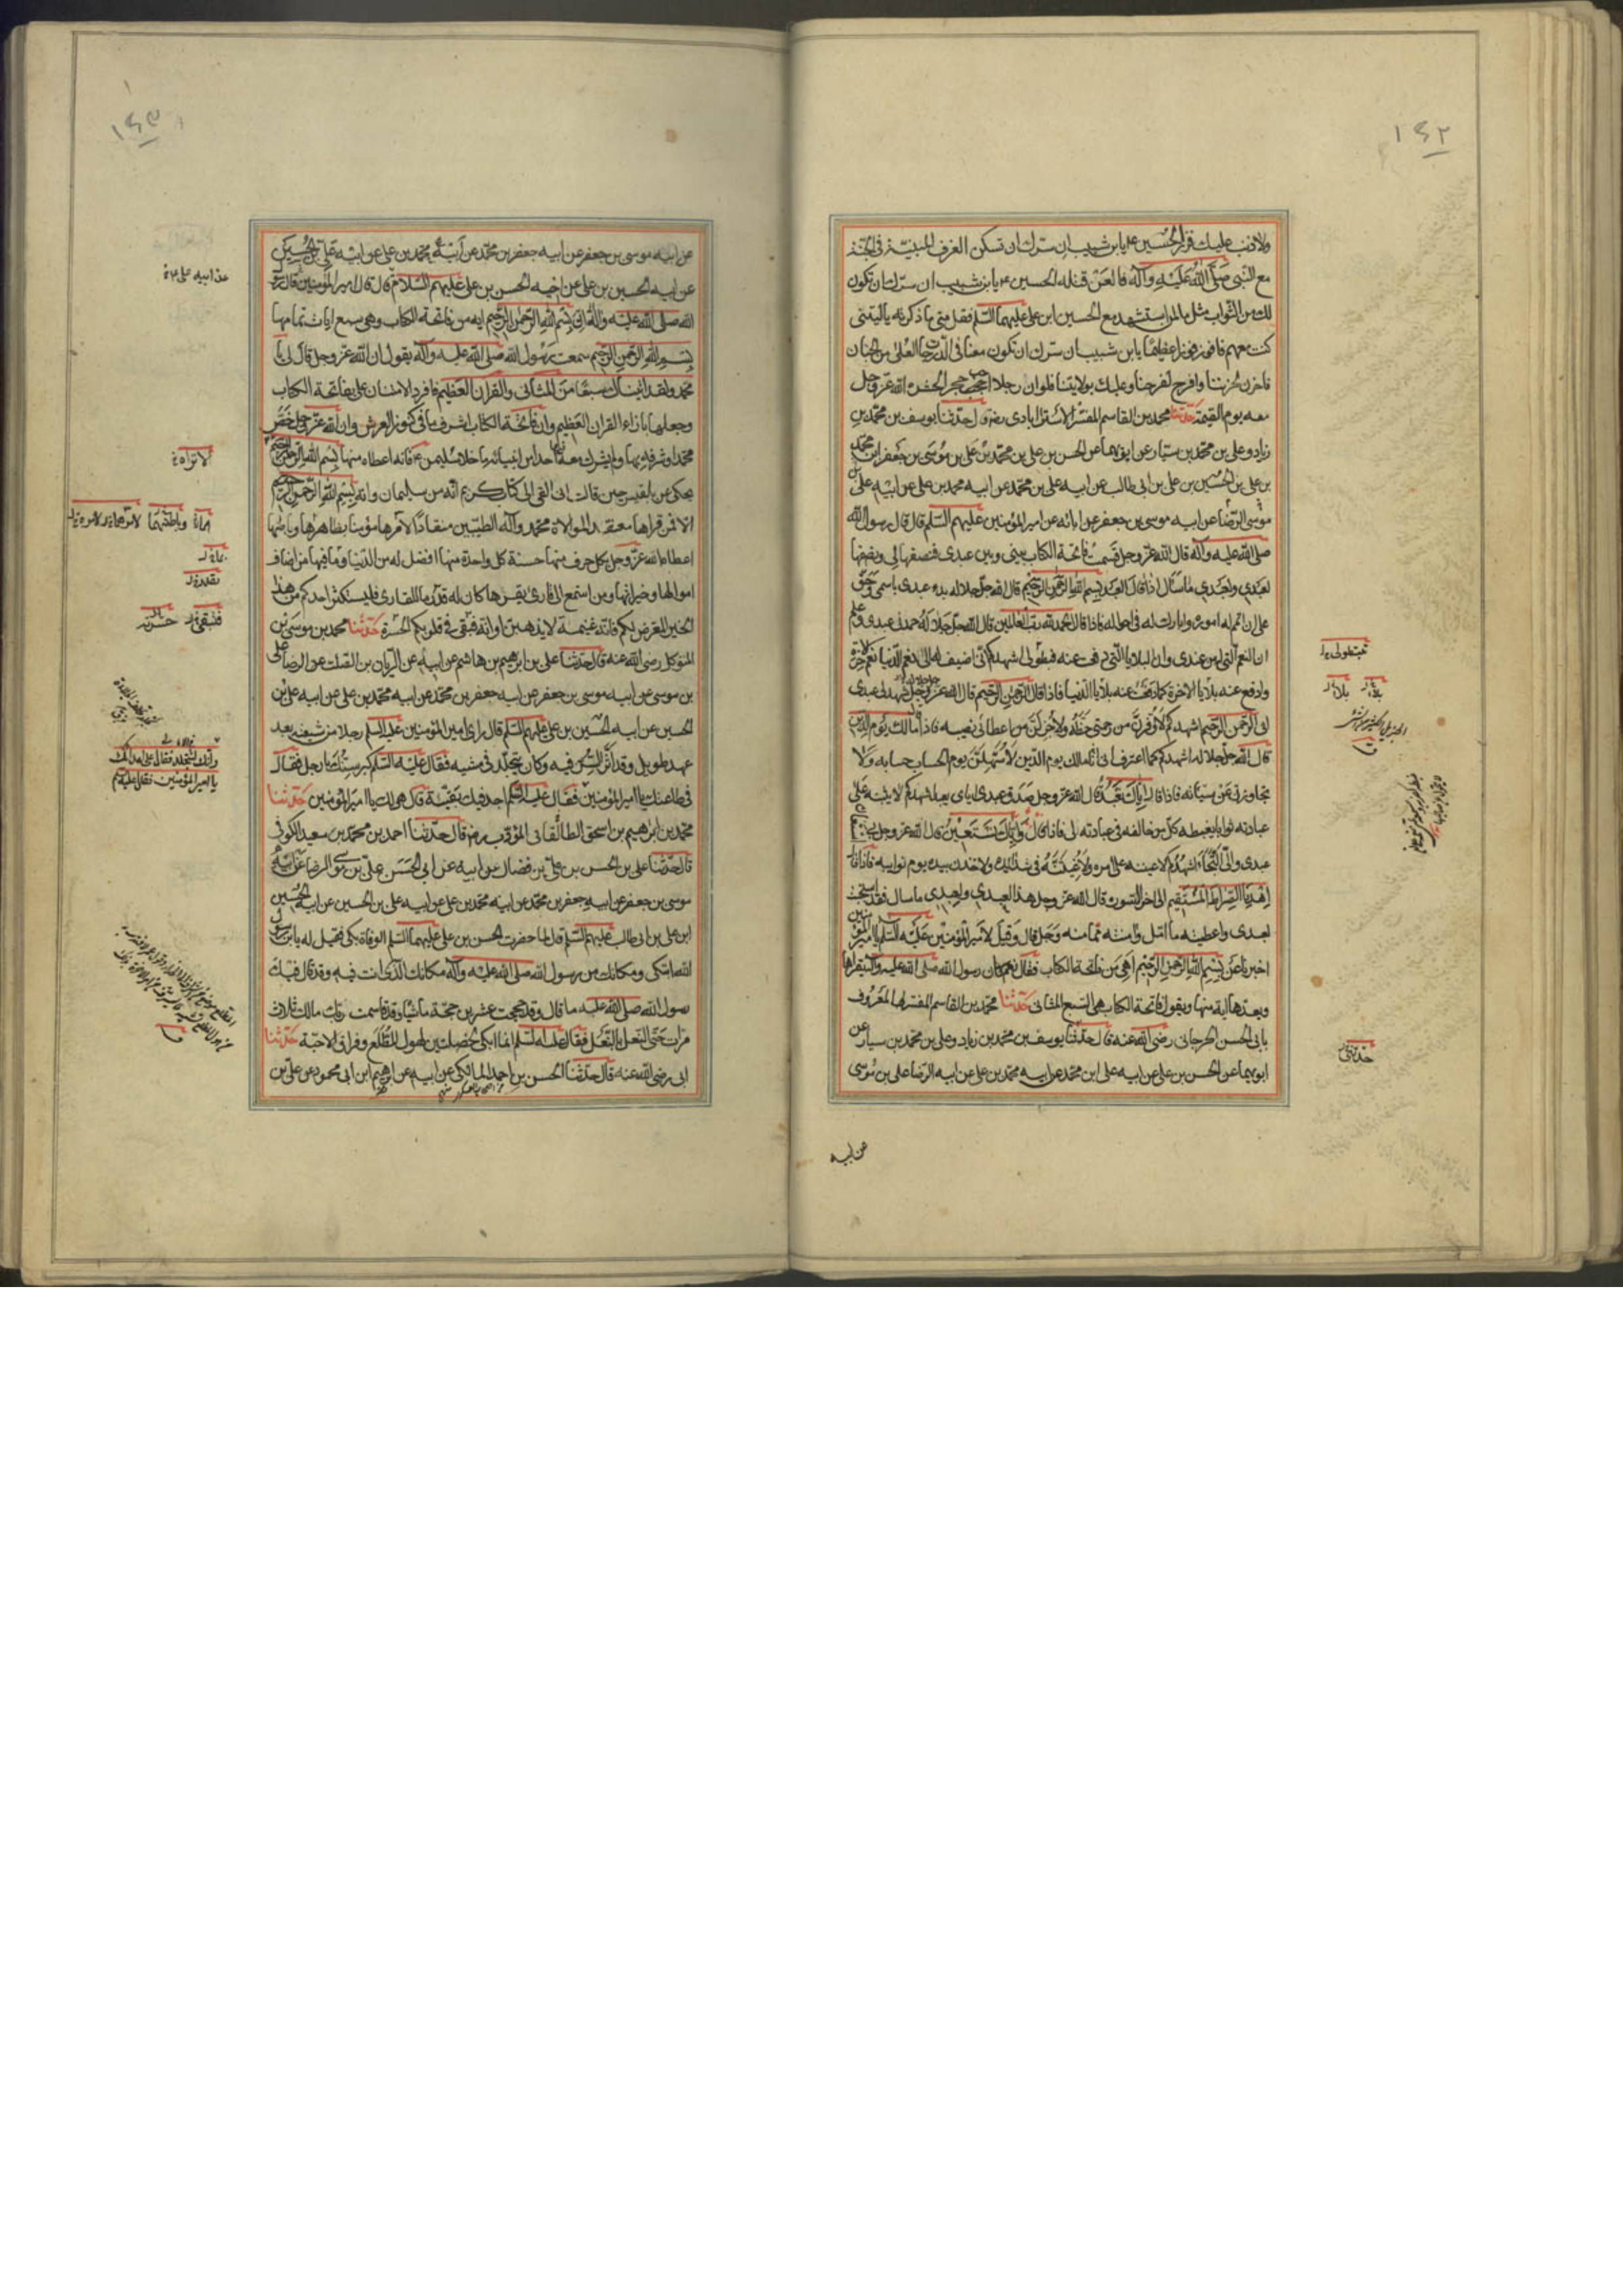 ١٤٢
ولا ذنب عليك فزر الحسين ع يا بن شبيب ان سرك ان تسكن الغرف المبنية في الجنة
مع النبي صلى الله عليه وآله فالعن قتلة الحسين ع يا بن شبيب ان سرك ان تكون
لك من الثواب مثل ما لمن استشهد مع الحسين ابن علي عليهما السلم فقل متى ما ذكرته يا ليتني
كنت معهم فافوز فوزا عظيما يا بن شبيب ان سرك ان تكون معنا في الدرجات العلى من الجنان
فاحزن لحزننا وافرح لفرحنا وعليك بولايتنا فلو ان رجلا احب حجر الحشره الله عز وجل
معه يوم القيمة حدثنا محمد بن القاسم المفسر الاسترابادي رضه قال حدثنا يوسف بن محمد بن
زياد وعلي بن محمد بن سيار عن ابويهما عن الحسن بن علي بن محمد بن علي بن موسى بن جعفر ابن محمد
بن علي بن الحسين بن علي بن ابي طالب عن ابيه علي بن محمد عن ابيه محمد بن علي عن ابيه علي بن
موسى الرضا عن ابيه موسى بن جعفر عن ابائه عن امير المؤمنين عليهم السلم قال قال رسول الله
صلى الله عليه وآله قال الله عز وجل قسمت فاتحة الكتاب بيني وبين عبدي فنصفها لي ونصفها
لعبدي ولعبدي ما سأل اذا قال العبد بسم الله الرحمن الرحيم قال الله جل جلاله بدء عبدي باسمي وحق
علي ان اتمم له اموره وابارك له في احواله فاذا قال الحمد لله رب العالمين قال الله جل جلاله حمدني عبدي وعلم
ان النعم التي له من عندي وان البلايا التي دفعت عنه فبطولي اشهدكم اني اضيف له الى نعم الدنيا نعم الاخرة
وادفع عنه بلايا الاخرة كما دفعت عنه بلايا الدنيا فاذا قال الرحمن الرحيم قال الله عز وجل شهد لي عبدي
اني الرحمن الرحيم اشهدكم لاوفرن من رحمتي حظه ولاجزلن من عطائي نصيبه فاذا قال مالك يوم الدين
قال الله جل جلاله اشهدكم كما اعترف اني انا مالك يوم الدين لاسهلن يوم الحساب حسابه ولا
تجاوزن عن سيئاته فاذا قال اياك نعبد قال الله عز وجل صدق عبدي اياي يعبد اشهدكم لاثيبنه على
عبادته ثوابا يغبطه كل من خالفه في عبادته لي فاذا قال واياك نستعين قال الله عز وجل بي
عبدي والي التجأ اشهدكم لاعيننه على امره ولاغيثنه في شدائده ولاخذن بيده يوم نوائبه فاذا قال
اهدنا الصراط المستقيم الى اخر السورة قال الله عز وجل هذا لعبدي ولعبدي ما سال فقد استجبت
لعبدي واعطيته ما امل وامنته مما منه وجل قال وقيل لامير المؤمنين عليه السلم يا امير المؤمنين
اخبرنا عن بسم الله الرحمن الرحيم اهي من فاتحة الكتاب فقال نعم كان رسول الله صلى الله عليه وآله يقراها
ويعدها اية منها ويقول فاتحة الكتاب هي السبع المثاني حدثنا محمد بن القاسم المفسر المعروف
بابي الحسن الجرجاني رضي الله عنه قال حدثنا يوسف بن محمد بن زياد وعلي بن محمد بن سيار عن
ابويهما عن الحسن بن علي عن ابيه علي ابن محمد عن ابيه محمد بن علي عن ابيه الرضا علي بن موسى
عن ابيه
فبطولي
بلاء
بلاء
حدثني
١٤٣
عن ابيه موسى بن جعفر عن ابيه جعفر بن محمد عن ابيه محمد بن علي عن ابيه علي بن الحسين
عن ابيه الحسين بن علي عن اخيه الحسن بن علي عليهم السلام قال قال امير المؤمنين قال رسول
الله صلى الله عليه وآله ان بسم الله الرحمن الرحيم اية من فاتحة الكتاب وهي سبع ايات تمامها
بسم الله الرحمن الرحيم سمعت رسول الله صلى الله عليه وآله يقول ان الله عز وجل قال لي يا
محمد ولقد اتيناك سبعا من المثاني والقران العظيم فافرد الامتنان علي بفاتحة الكتاب
وجعلها بازاء القران العظيم وان فاتحة الكتاب اشرف ما في كنوز العرش وان الله عز وجل خص
محمدا وشرفه بها ولم يشرك معه فيها احدا من انبيائه ما خلا سليمن ع فانه اعطاه منها بسم الله الرحمن الرحيم
يحكى عن بلقيس حين قالت اني القي الي كتاب كريم انه من سليمان وانه بسم الله الرحمن الرحيم
الا فمن قراها معتقدا لموالاة محمد وآله الطيبين منقادا لامرها مؤمنا بظاهرها وباطنها
اعطاه الله عز وجل بكل حرف منها حسنة كل واحدة منها افضل له من الدنيا وما فيها من اصناف
اموالها وخيراتها ومن استمع الى قارئ يقرءها كان له قدر ما للقارئ فليستكثر احدكم من هذا
الخير المعرض لكم فانه غنيمة لا يذهبن اوانه فتبقى في قلوبكم الحسرة حدثنا محمد بن موسى بن
المتوكل رضي الله عنه قال حدثنا علي بن ابرهيم بن هاشم عن ابيه عن الريان بن الصلت عن الرضا علي
بن موسى عن ابيه موسى بن جعفر عن ابيه جعفر بن محمد عن ابيه محمد بن علي عن ابيه علي بن
الحسين عن ابيه الحسين بن علي عليهم السلم قال راى امير المؤمنين عليه السلم رجلا من شيعته بعد
عهد طويل وقد اثر السن فيه وكان يتجلد في مشيه فقال عليه السلم كبر سنك يا رجل فقال
في طاعتك يا امير المؤمنين فقال عليه السلم اجد فيك بقية قال هي لك يا امير المؤمنين حدثنا
محمد بن ابرهيم بن اسحق الطالقاني المؤدب رضه قال حدثنا احمد بن محمد بن سعيد الكوفي
قال حدثنا علي بن الحسن بن علي بن فضال عن ابيه عن ابي الحسن علي بن موسى الرضا عن ابيه
موسى بن جعفر عن ابيه جعفر بن محمد عن ابيه محمد بن علي عن ابيه علي بن الحسين عن ابيه الحسين
ابن علي بن ابي طالب عليهم السلم قال لما حضرت الحسن بن علي عليهما السلم الوفاة بكى فقيل له يا بن رسول
الله اتبكي ومكانك من رسول الله صلى الله عليه وآله مكانك الذي انت فيه وقد قال فيك
رسول الله صلى الله عليه ما قال وقد حججت عشرين حجة ماشيا وقد قاسمت ربك مالك ثلاث
مرات حتى النعل بالنعل فقال عليه السلم انما ابكي لخصلتين لهول المطلع وفراق الاحبة حدثنا
ابي رضي الله عنه قال حدثنا الحسن بن احمد المالكي عن ابيه عن ابرهيم ابن ابي محمود عن علي بن
عن ابيه علي
يا امير المؤمنين فقال عليه السلم